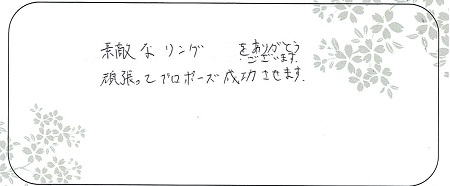 素敵なリング をありがとうございます.
頑張ってプロポーズ成功させます.